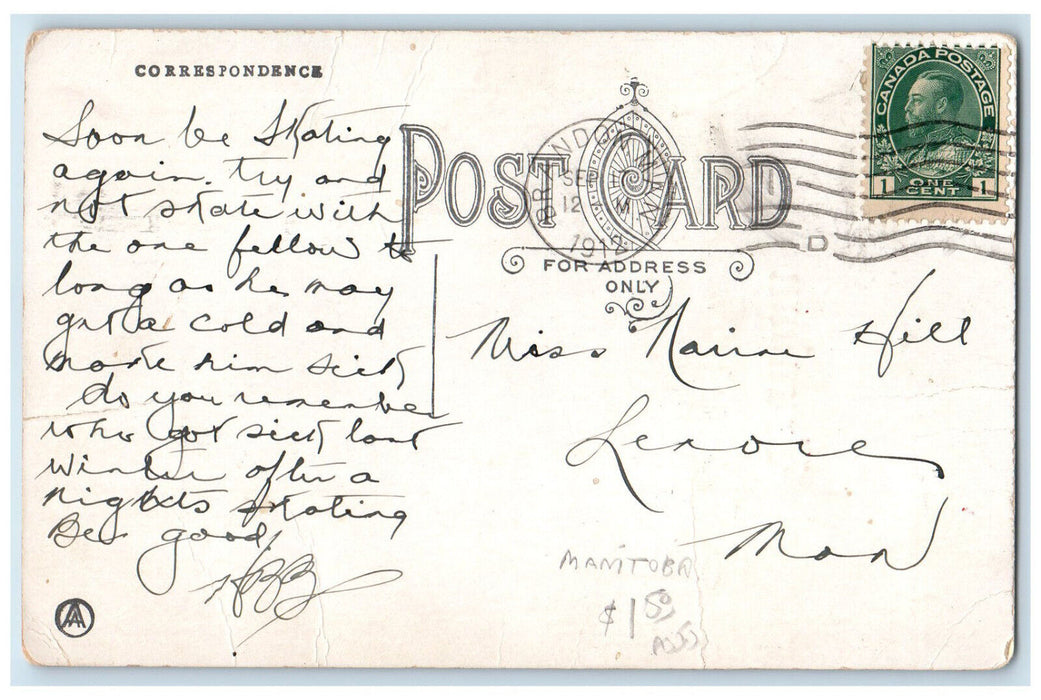 CORRESPONDENCE
Soon be Skating
again. try and
not skate with
the one fellow to
long as he may
get a cold and
make him sick
do you remember
who got sick last
winter after a
nights skating
Be good
HBB
POST CARD
FOR ADDRESS
ONLY
BRANDON MAN
SEP
12 M
1912
D
CANADA POSTAGE
1 ONE CENT 1
Miss Hill
Lenore
Man
MANITOBA
$1 50
AA